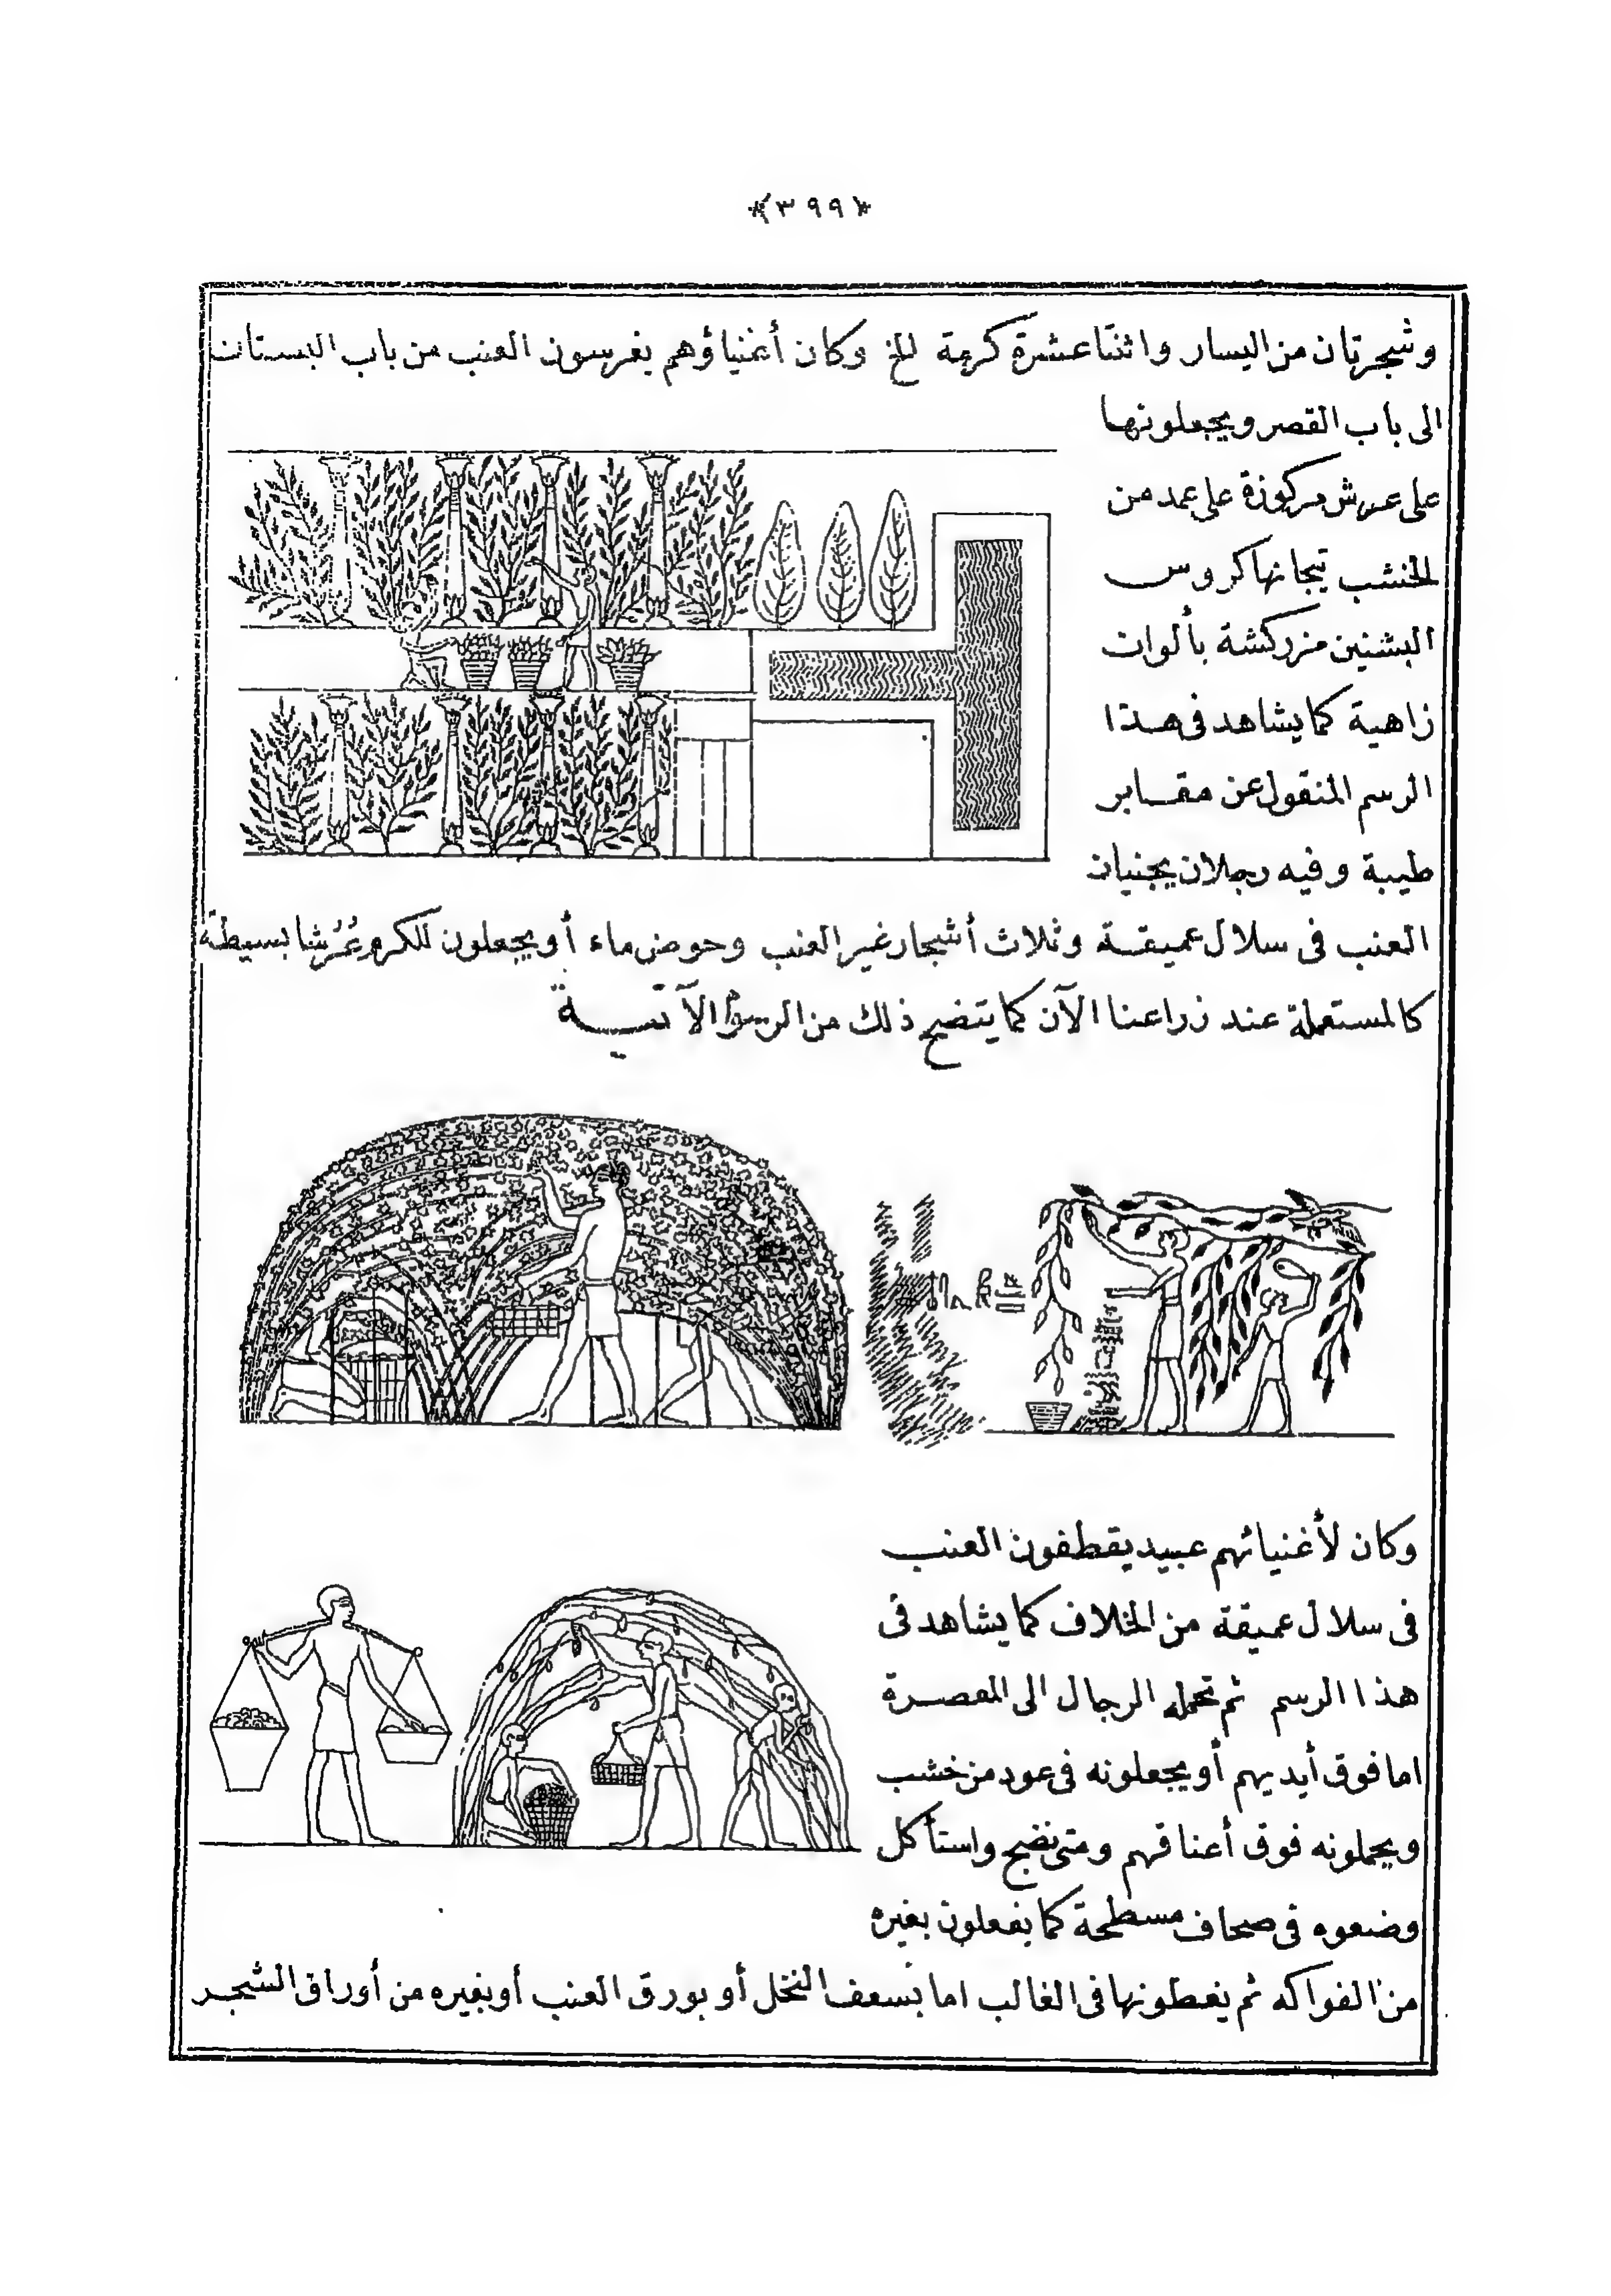 ﴿٣٩٩﴾
وشجرتان من اليسار واثنتا عشرة كرمة الخ وكان أغنياؤهم يغرسون العنب من باب البستان
الى باب القصر ويجعلونها
على عرش مركوزة على عمد من
الخشب تيجانها كروس
البشنين مزركشة بألوان
زاهية كما يشاهد فى هذا
الرسم المنقول عن مقابر
طيبة وفيه رجلان يجنيان
العنب فى سلال عميقة وثلاث أشجار غير العنب وحوض ماء أو يجعلون للكرم عُرُشا بسيطة
كالمستعملة عند زراعنا الآن كما يتضح ذلك من الرسوم الآتية
وكان لأغنيائهم عبيد يقطفون العنب
فى سلال عميقة من الخلاف كما يشاهد فى
هذا الرسم ثم تحمله الرجال الى المعصرة
اما فوق أيديهم أو يجعلونه فى عود من خشب
ويحملونه فوق أعناقهم ومتى نضج واستأكل
وضعوه فى صحاف مسطحة كما يفعلون بغيره
من الفواكه ثم يغطونها فى الغالب اما بسعف النخل أو بورق العنب أو بغيره من أوراق الشجر